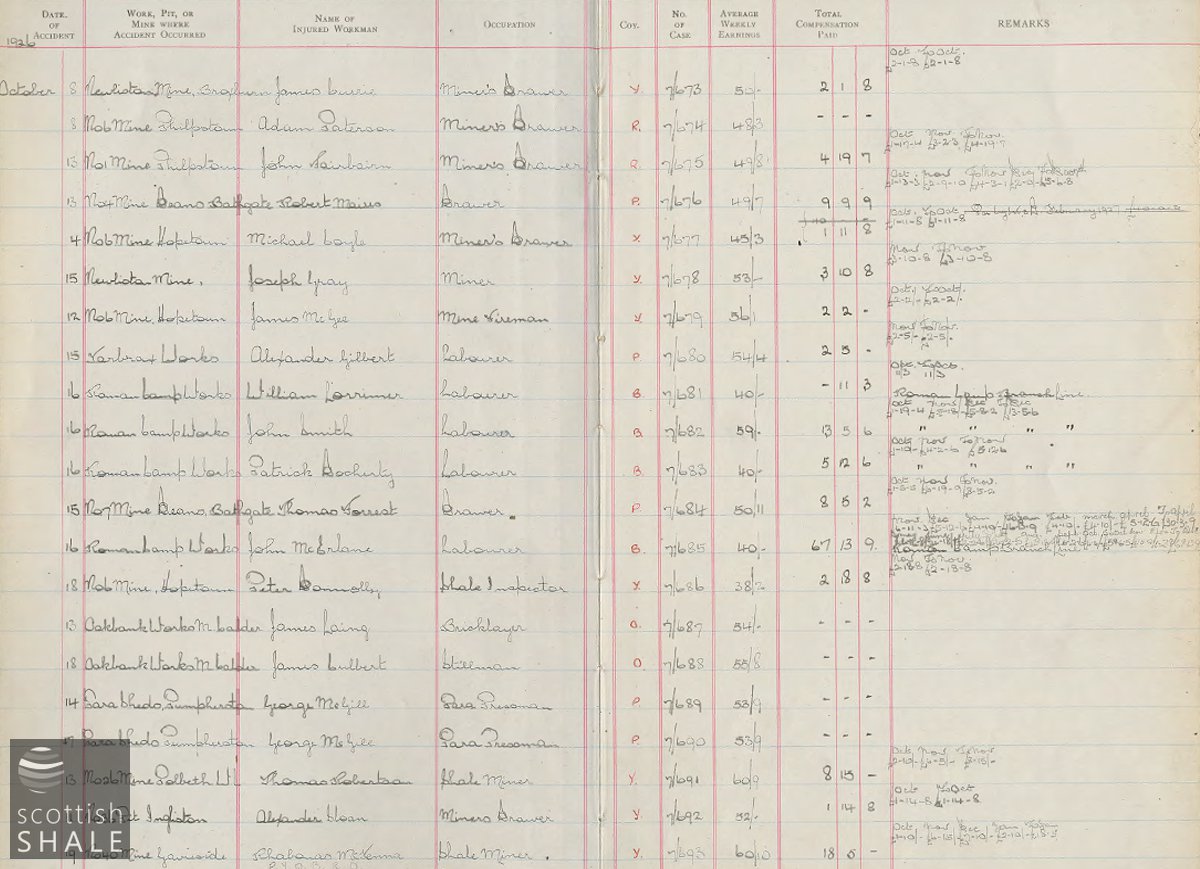 DATE. OF ACCIDENT WORK, PIT, OR MINE WHERE ACCIDENT OCCURRED NAME OF INJURED WORKMAN OCCUPATION COY. NO. OF CASE AVERAGE WEEKLY EARNINGS TOTAL COMPENSATION PAID REMARKS
1926
Oct. To Oct.
£2-1-8 £2-1-8
October 8 Newliston Mine, Broxburn James Currie Miner's Drawer Y. 7/673 50/- 2 1 8
8 No6 Mine Philpstoun Adam Paterson Miner's Drawer R. 7/674 48/3 - - -
Oct Nov To Nov.
£1-17-4 £3-2-3 £4-19-7
13 No1 Mine Philpstoun John Fairbairn Miner's Drawer R. 7/675 49/8 4 19 7
13 No4 Mine Deans Bathgate Robert Drawer P. 7/676 49/7 9 9 9
Oct. To Oct.
£1-11-8 £1-11-8
4 No6 Mine Hopetoun Michael Coyle Miner's Drawer Y. 7/677 45/3 1 11 8
Nov To Nov
£3-10-8 £3-10-8
15 Newliston Mine, Joseph Gray Miner Y. 7/678 53/- 3 10 8
Oct. To Oct.
£2-2/- £2-2/-
12 No6 Mine, Hopetoun James McGee Mine Fireman Y. 7/679 56/1 2 2 -
Nov To Nov.
£2-5/- £2-5/-
15 Tarbrax Works Alexander Gilbert Labourer P. 7/680 54/4 2 5 -
Oct. To Oct.
11/3 11/3
16 Roman Camp Works William Lorrimer Labourer B. 7/681 40/- - 11 3 Roman Camp Branch Line
Oct Nov Dec To Dec
16 Roman Camp Works John Smith Labourer B. 7/682 59/- 13 5 6 " " " "
Oct Nov To Nov
16 Roman Camp Works Patrick Docherty Labourer B. 7/683 40/- 5 12 6 " " " "
Oct Nov To Nov.
15 No7 Mine Deans, Bathgate Thomas Forrest Drawer. P. 7/684 50/11 8 5 2
16 Roman Camp Works John McErlane Labourer B. 7/685 40/- 67 13 9
Nov To Nov.
£2-18-8 £2-18-8
18 No6 Mine, Hopetoun Peter Connolly Shale Inspector Y. 7/686 38/2 2 18 8
13 Oakbank Works M. Calder James Laing Bricklayer O. 7/687 54/- - - -
18 Oakbank Works M. Calder James Culbert Stillman O. 7/688 55/8 - - -
14 Para Sheds, Pumpherston George McGill Para Pressman P. 7/689 53/9 - - -
17 Para Sheds Pumpherston George McGill Para Pressman P. 7/690 53/9 - - -
Oct, Nov To Nov
£2-10/- £6-5/- £8-15/-
13 No26 Mine Polbeth Thomas Robertson Shale Miner Y. 7/691 60/9 8 15 -
Oct To Oct
£1-14-8 £1-14-8
Pit Ingliston Alexander Sloan Miner's Drawer Y. 7/692 52/- 1 14 8
Oct. Nov Dec Jan To Jan
19 No40 Mine McKenna Shale Miner. Y. 7/693 60/10 18 5 -
scottish
SHALE